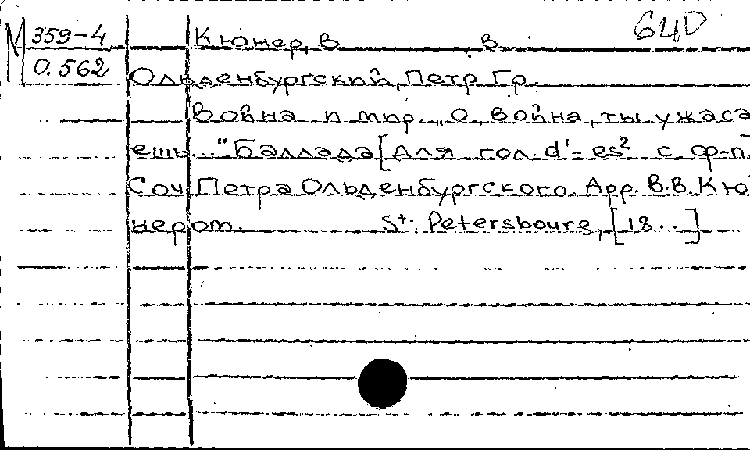 М 359-4 Кюнер, В. В. 640
О.562
Ольденбургский, Петр Гр.
Война и мир. „О, война, ты ужаса
ешь.." Баллада [Для гол. d'-es² с ф-п]
Соч. Петра Ольденбургского. Арр. В.В. Кю
нером. St. Petersbourg, [18..]